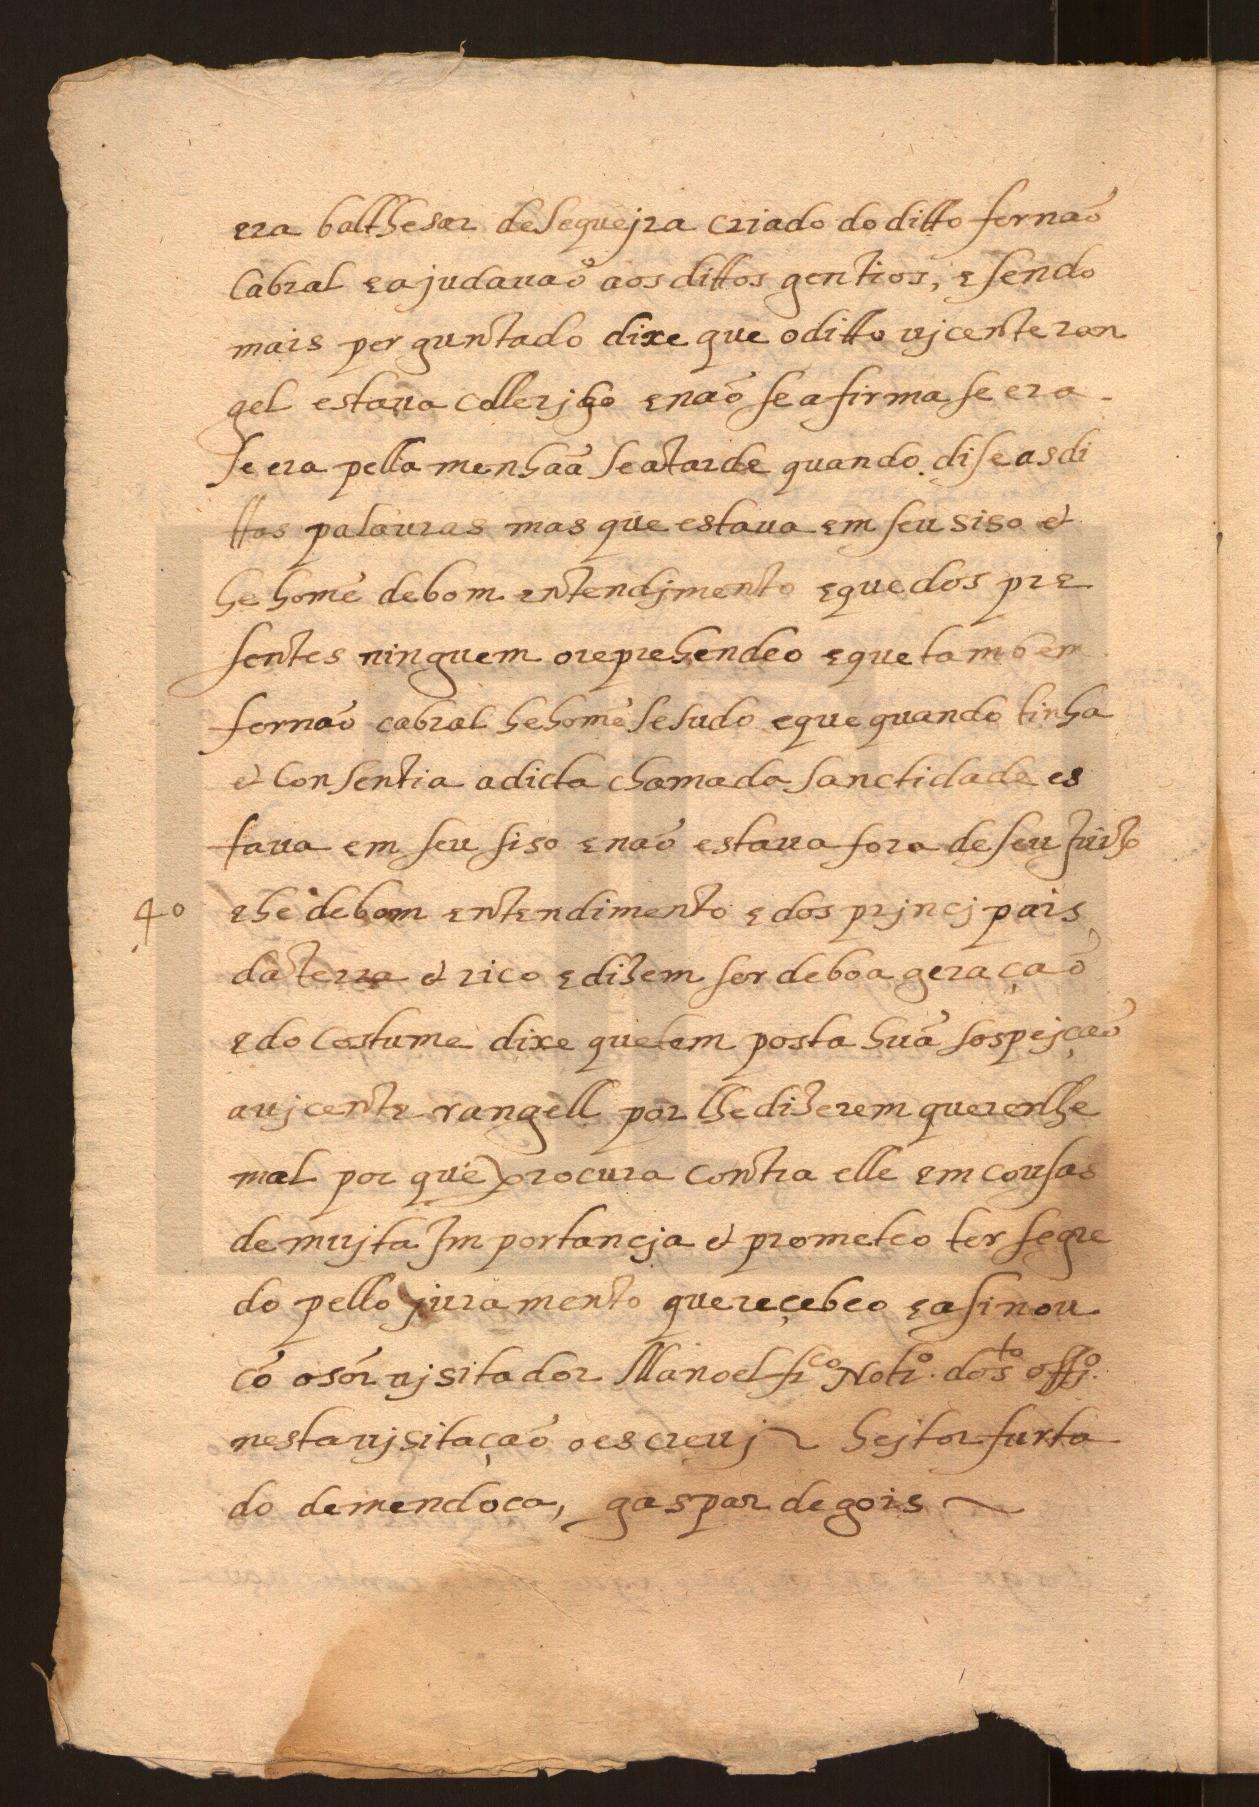 era balthesar de Sequejra criado do ditto fernaõ
Cabral e ajudauaõ aos dittos gentios, e sendo
mais perguntado dixe que o ditto vjcente ran
gel estaua collerjho e naõ se afirma se era
se era pella menhaã se a tarde quando dise as di
ttas palauras mas que estaua em seu siso &
he homẽ de bom entendjmento e que dos pre
sentes ninguem o reprehendeo e que tambem
fernaõ cabral he homẽ sesudo e que quando tinha
& Consentia a dicta chamada sanctidade es
taua em seu siso e naõ estaua fora de seu Juizo
40 e he de bom entendimento e dos prjncjpais
da terra & rico e dizem ser de boa geraçaõ
e do costume dixe que tem posta huã sospejçaõ
a vjcente rangell por lhe dizerem querer lhe
mal por que procura contra elle em cousas
de mujta Jmportancja & prometeo ter segre
do pello juramento que reçebeo e asinou
cõ o sõr vjsitador Manoel frco Notro. do sto offjo.
nesta vjsitaçaõ o escreuj hejtor furta
do de mendoça, gaspar de gois